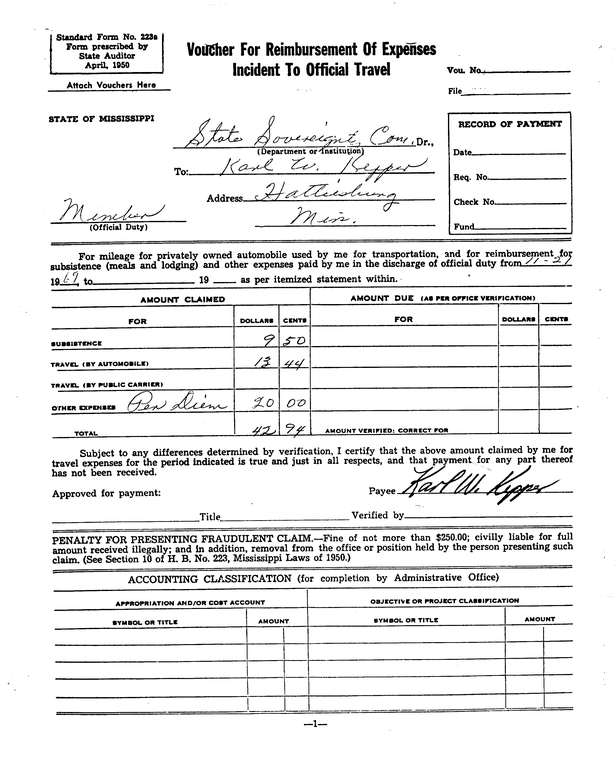 Standard Form No. 223a
Form prescribed by
State Auditor
April, 1950
Attach Vouchers Here
Voucher For Reimbursement Of Expenses
Incident To Official Travel
Vou. No.
File
STATE OF MISSISSIPPI
State Sovereignt. Com. Dr.,
(Department or Institution)
To: Karl W. Kepper
Address Hattiesburg
Miss.
Member
(Official Duty)
RECORD OF PAYMENT
Date
Req. No.
Check No.
Fund
For mileage for privately owned automobile used by me for transportation, and for reimbursement for
subsistence (meals and lodging) and other expenses paid by me in the discharge of official duty from 11-27
1967, to 19 as per itemized statement within.
AMOUNT CLAIMED AMOUNT DUE (AS PER OFFICE VERIFICATION)
FOR DOLLARS CENTS FOR DOLLARS CENTS
SUBSISTENCE 9 50
TRAVEL (BY AUTOMOBILE) 13 44
TRAVEL (BY PUBLIC CARRIER)
OTHER EXPENSES Per Diem 20 00
TOTAL 42 94 AMOUNT VERIFIED; CORRECT FOR
Subject to any differences determined by verification, I certify that the above amount claimed by me for
travel expenses for the period indicated is true and just in all respects, and that payment for any part thereof
has not been received.
Approved for payment: Payee Karl W. Kepper
Title Verified by
PENALTY FOR PRESENTING FRAUDULENT CLAIM.—Fine of not more than $250.00; civilly liable for full
amount received illegally; and in addition, removal from the office or position held by the person presenting such
claim. (See Section 10 of H. B. No. 223, Mississippi Laws of 1950.)
ACCOUNTING CLASSIFICATION (for completion by Administrative Office)
APPROPRIATION AND/OR COST ACCOUNT OBJECTIVE OR PROJECT CLASSIFICATION
SYMBOL OR TITLE AMOUNT SYMBOL OR TITLE AMOUNT
—1—